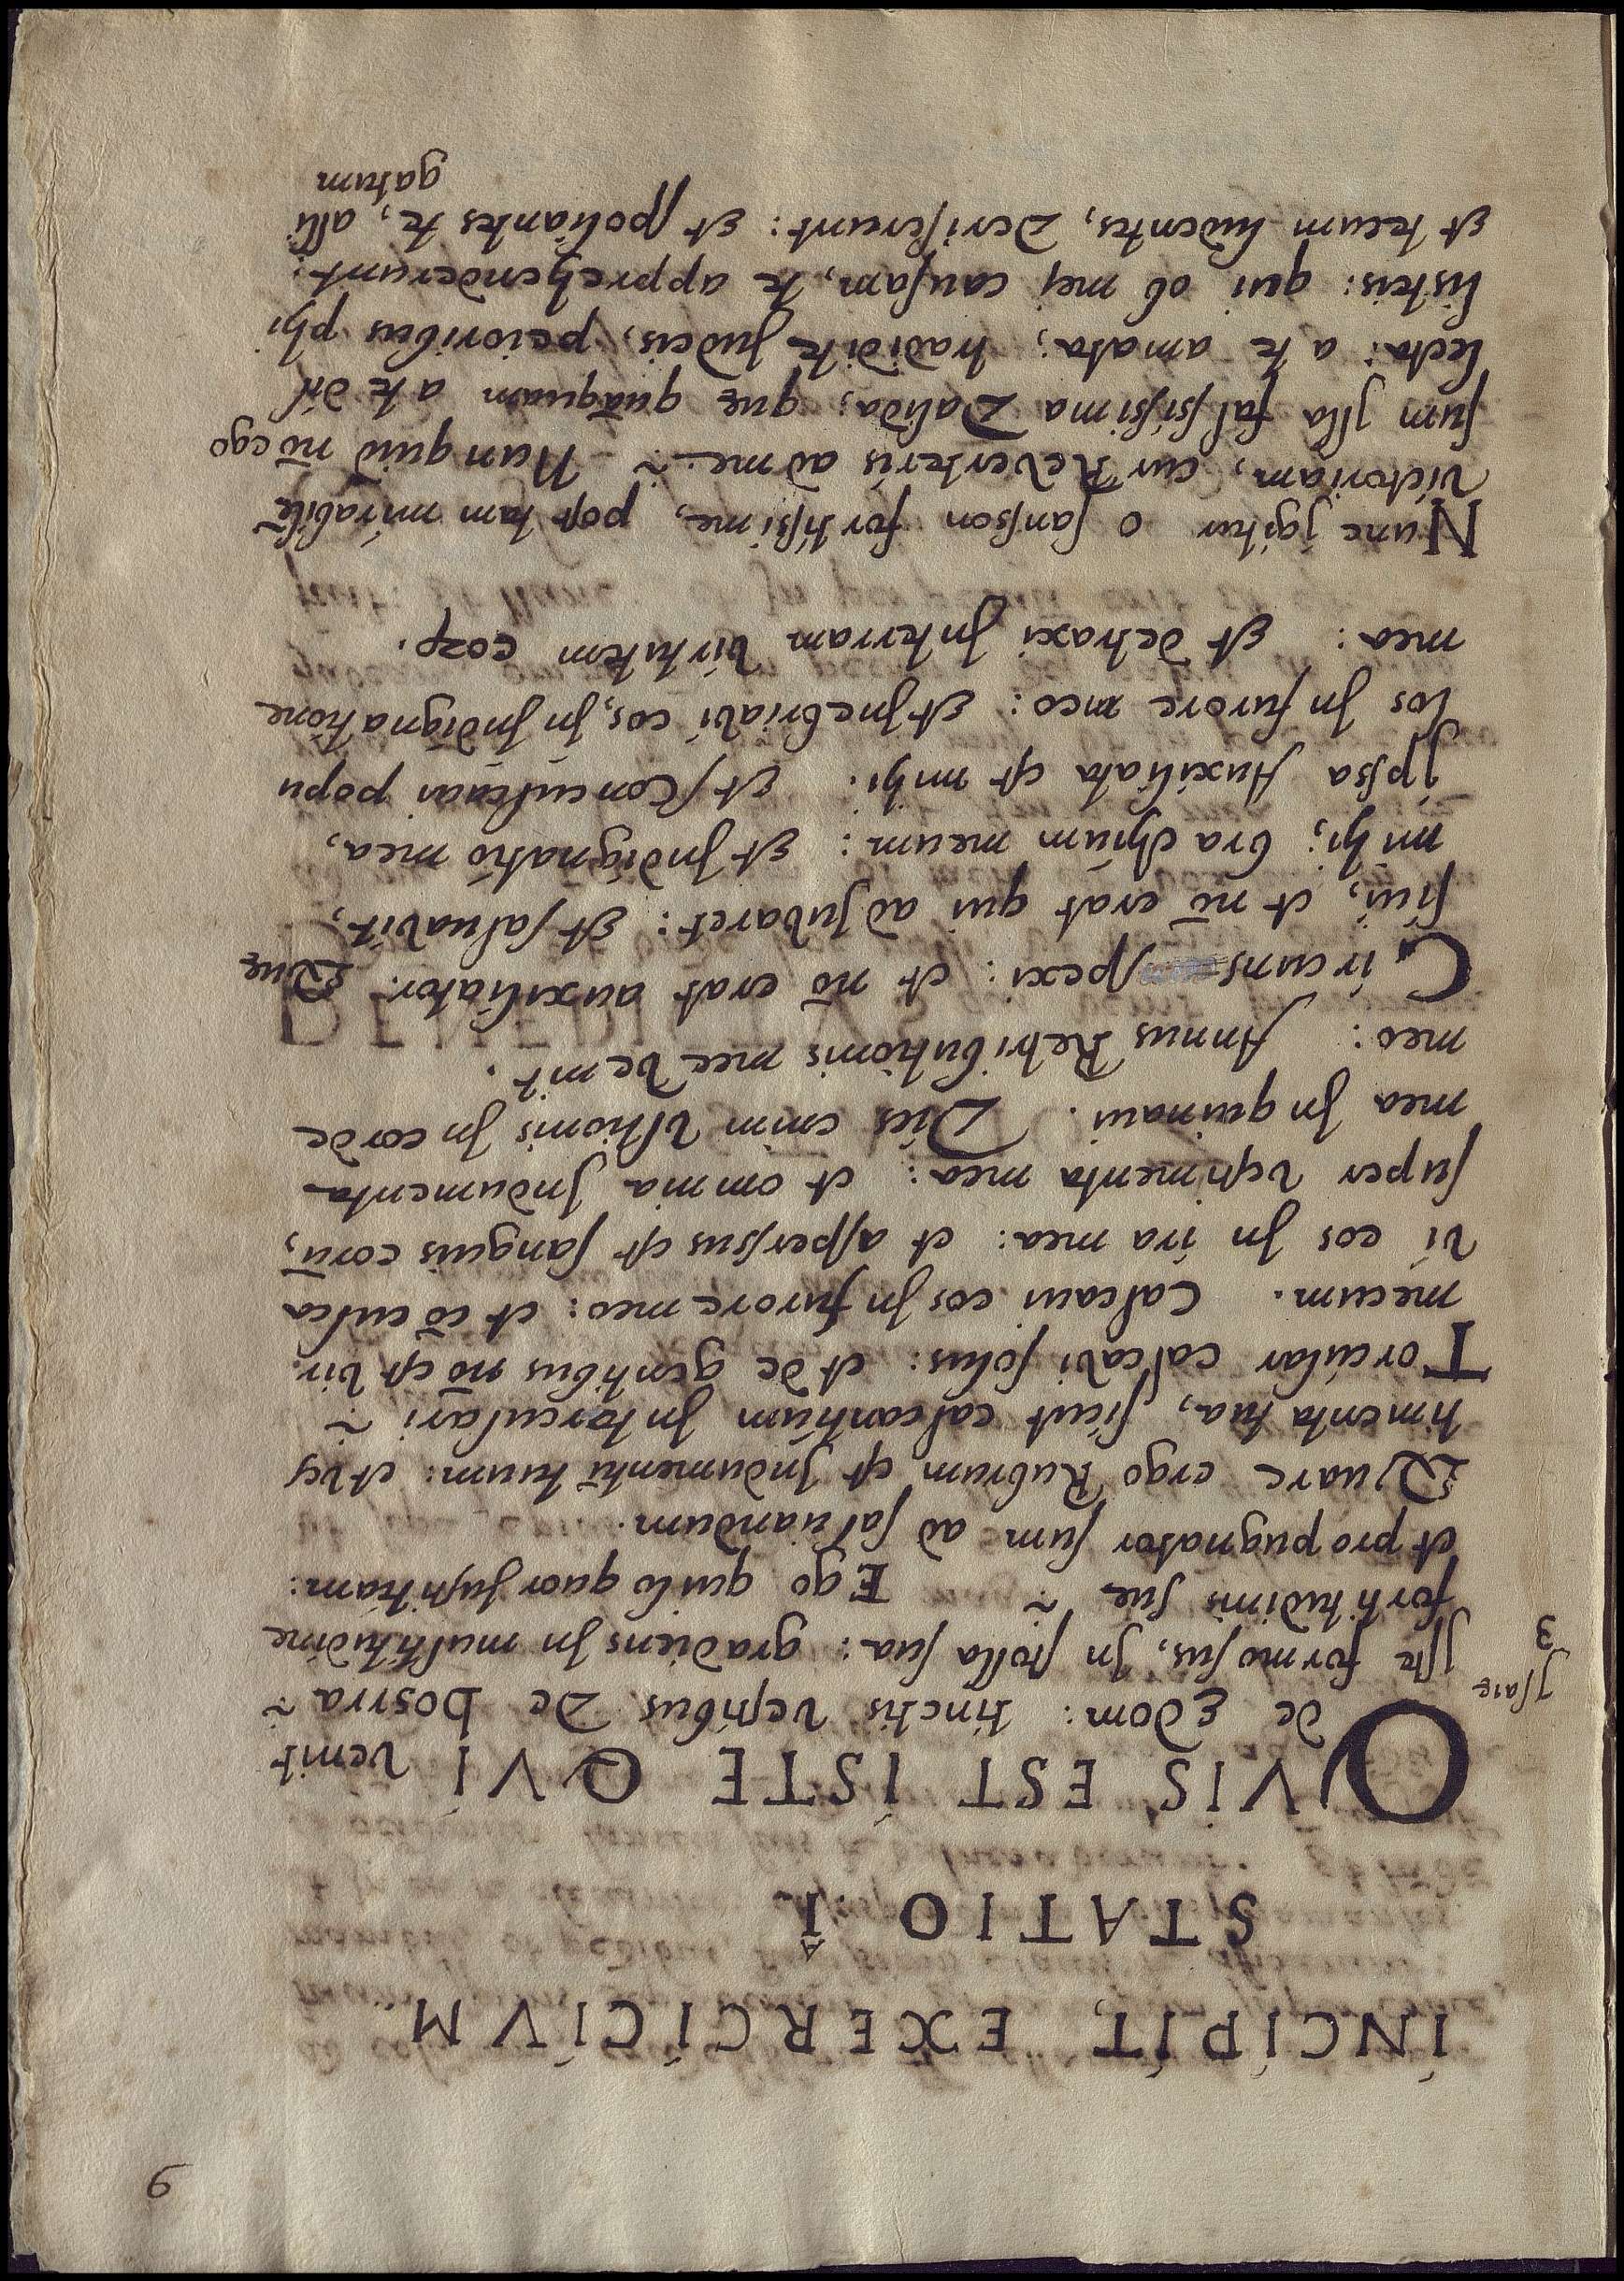 9
INCIPIT, EXERCICIVM
STATIO I
QVIS EST ISTE QVI venit
de Edom: tinctis vestibus De bosrra~
Jsaie
3
Jste formosus, Jn stolla sua: gradiens Jn multitudine
fortitudinis sue ~ Ego qui loquor justitiam:
et propugnator sum ad saluandum.
Quare ergo Rubrum est Jndumentū tuum: et ves
timenta tua, sicut calcantium Jntorculari ~
Torcular calcavi solus: et de gentibus nō est vir
mecum. Calcaui eos Jn furore meo: et cōculca
vi eos Jn ira mea: et aspersus est sanguis eorū,
super vestimenta mea: et omnia Jndumenta
mea Jnquinaui. Dies enim Vltionis Jn corde
meo: Annus Retributionis mee Venit.
Circunspexi: et nō erat auxiliator. Que
siui, et nō erat qui adjubaret: Et saluabit,
mihi, brachium meum: Et Jndignatio mea,
Jpssa Auxiliata est mihi. Et Conculcaui popu
los Jn furore meo: Et Jnebriabi eos, Jn Jndignatione
mea: Et detraxi Jnterram virtutem eoꝝ.
Nunc jgitur o sansson fortissime, post tam mirabilē
victoriam, cur Reverteris ad me ~ Nunquid nō ego
sum Jlla falssissima Dalida; que quāquam a te dil
lecta: a te amata; tradidi te Judeis, peioribus phi
listeis: qui ob mej causam, te apprehenderunt:
Et tecum ludentes, Deriserunt: Et spoliantes te, alli
gatum